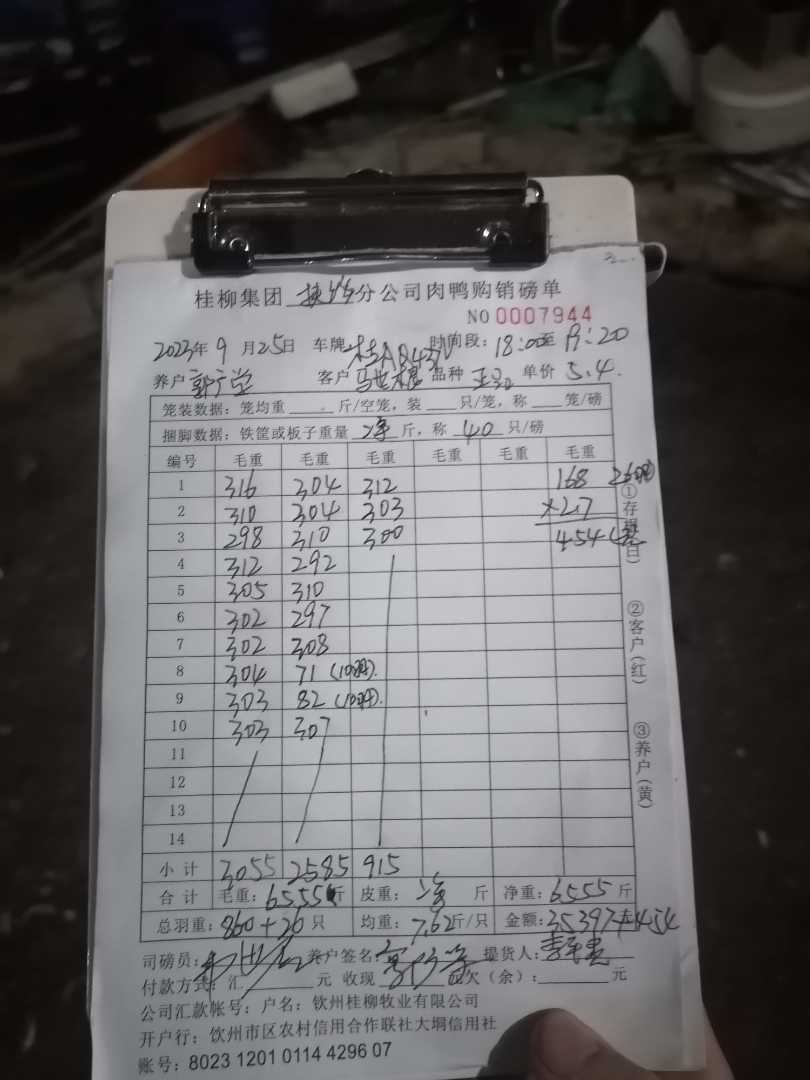 桂柳集团 分公司肉鸭购销磅单
NO 0007944
2023年 9 月 25 日 车牌 时间段: 18:00至 19:20
养户 客户 品种 单价 5.4.
笼装数据: 笼均重 斤/空笼, 装 只/笼, 称 笼/磅
捆脚数据: 铁筐或板子重量 净 斤, 称 40 只/磅
编号 毛重 毛重 毛重 毛重 毛重 毛重
1 316 304 312 168
2 310 304 303 ×2.7
3 298 310 300 454
4 312 292
5 305 310
6 302 297
7 302 308
8 304 71
9 303 82
10 303 307
11
12
13
14
小计 3055 2585 915
合计 毛重: 6555 斤 皮重: 净 斤 净重: 6555 斤
总羽重: 860+26 只 均重: 7.62斤/只 金额: 35397+454
司磅员: 养户签名: 提货人:
付款方式: 汇 元 收现 欠(余): 元
公司汇款帐号: 户名: 钦州桂柳牧业有限公司
开户行: 钦州市区农村信用合作联社大垌信用社
账号: 8023 1201 0114 4296 07
①存根(白)
②客户(红)
③养户(黄)